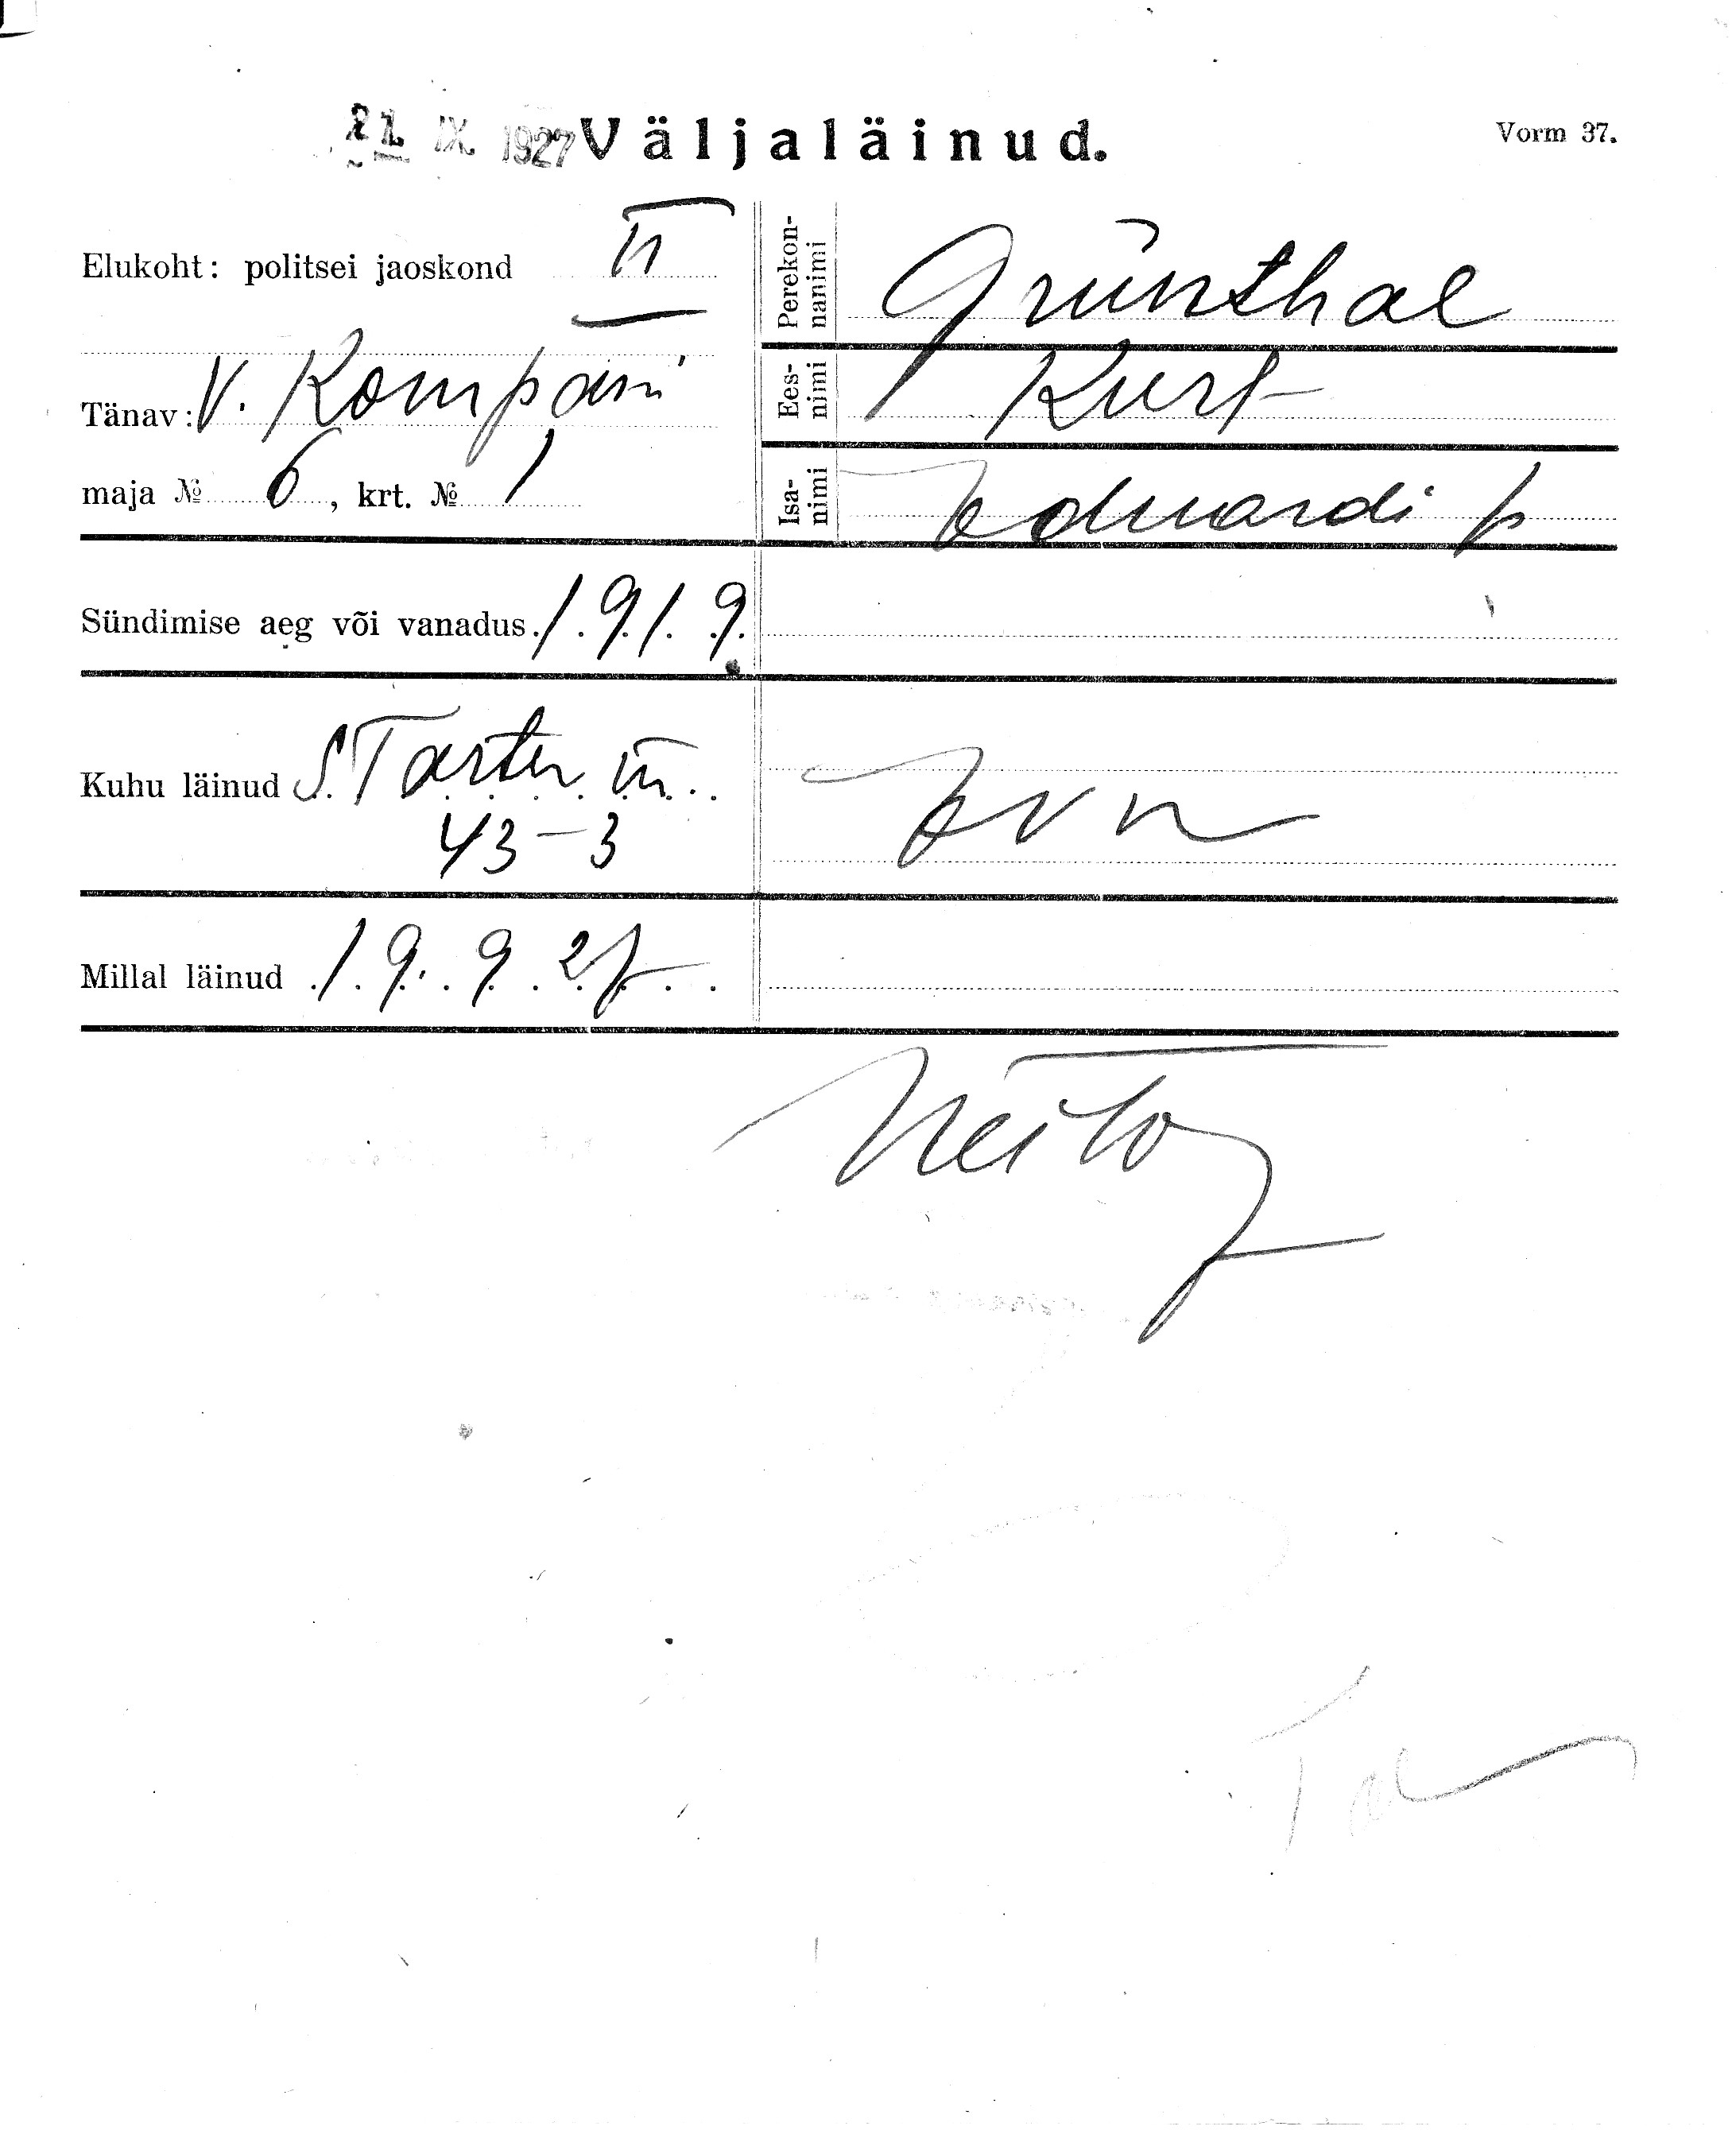 21. IX. 1927 Väljaläinud.
Vorm 37.
Elukoht: politsei jaoskond II
Tänav: V. Kompani
maja № 6, krt. № 1
Perekon-
nanimi
Grünthal
Ees-
nimi
Kurt
Isa-
nimi
Eduardi p
Sündimise aeg või vanadus 1919.
Kuhu läinud S. Tartu m.
43-3
Millal läinud 19. 9. 27